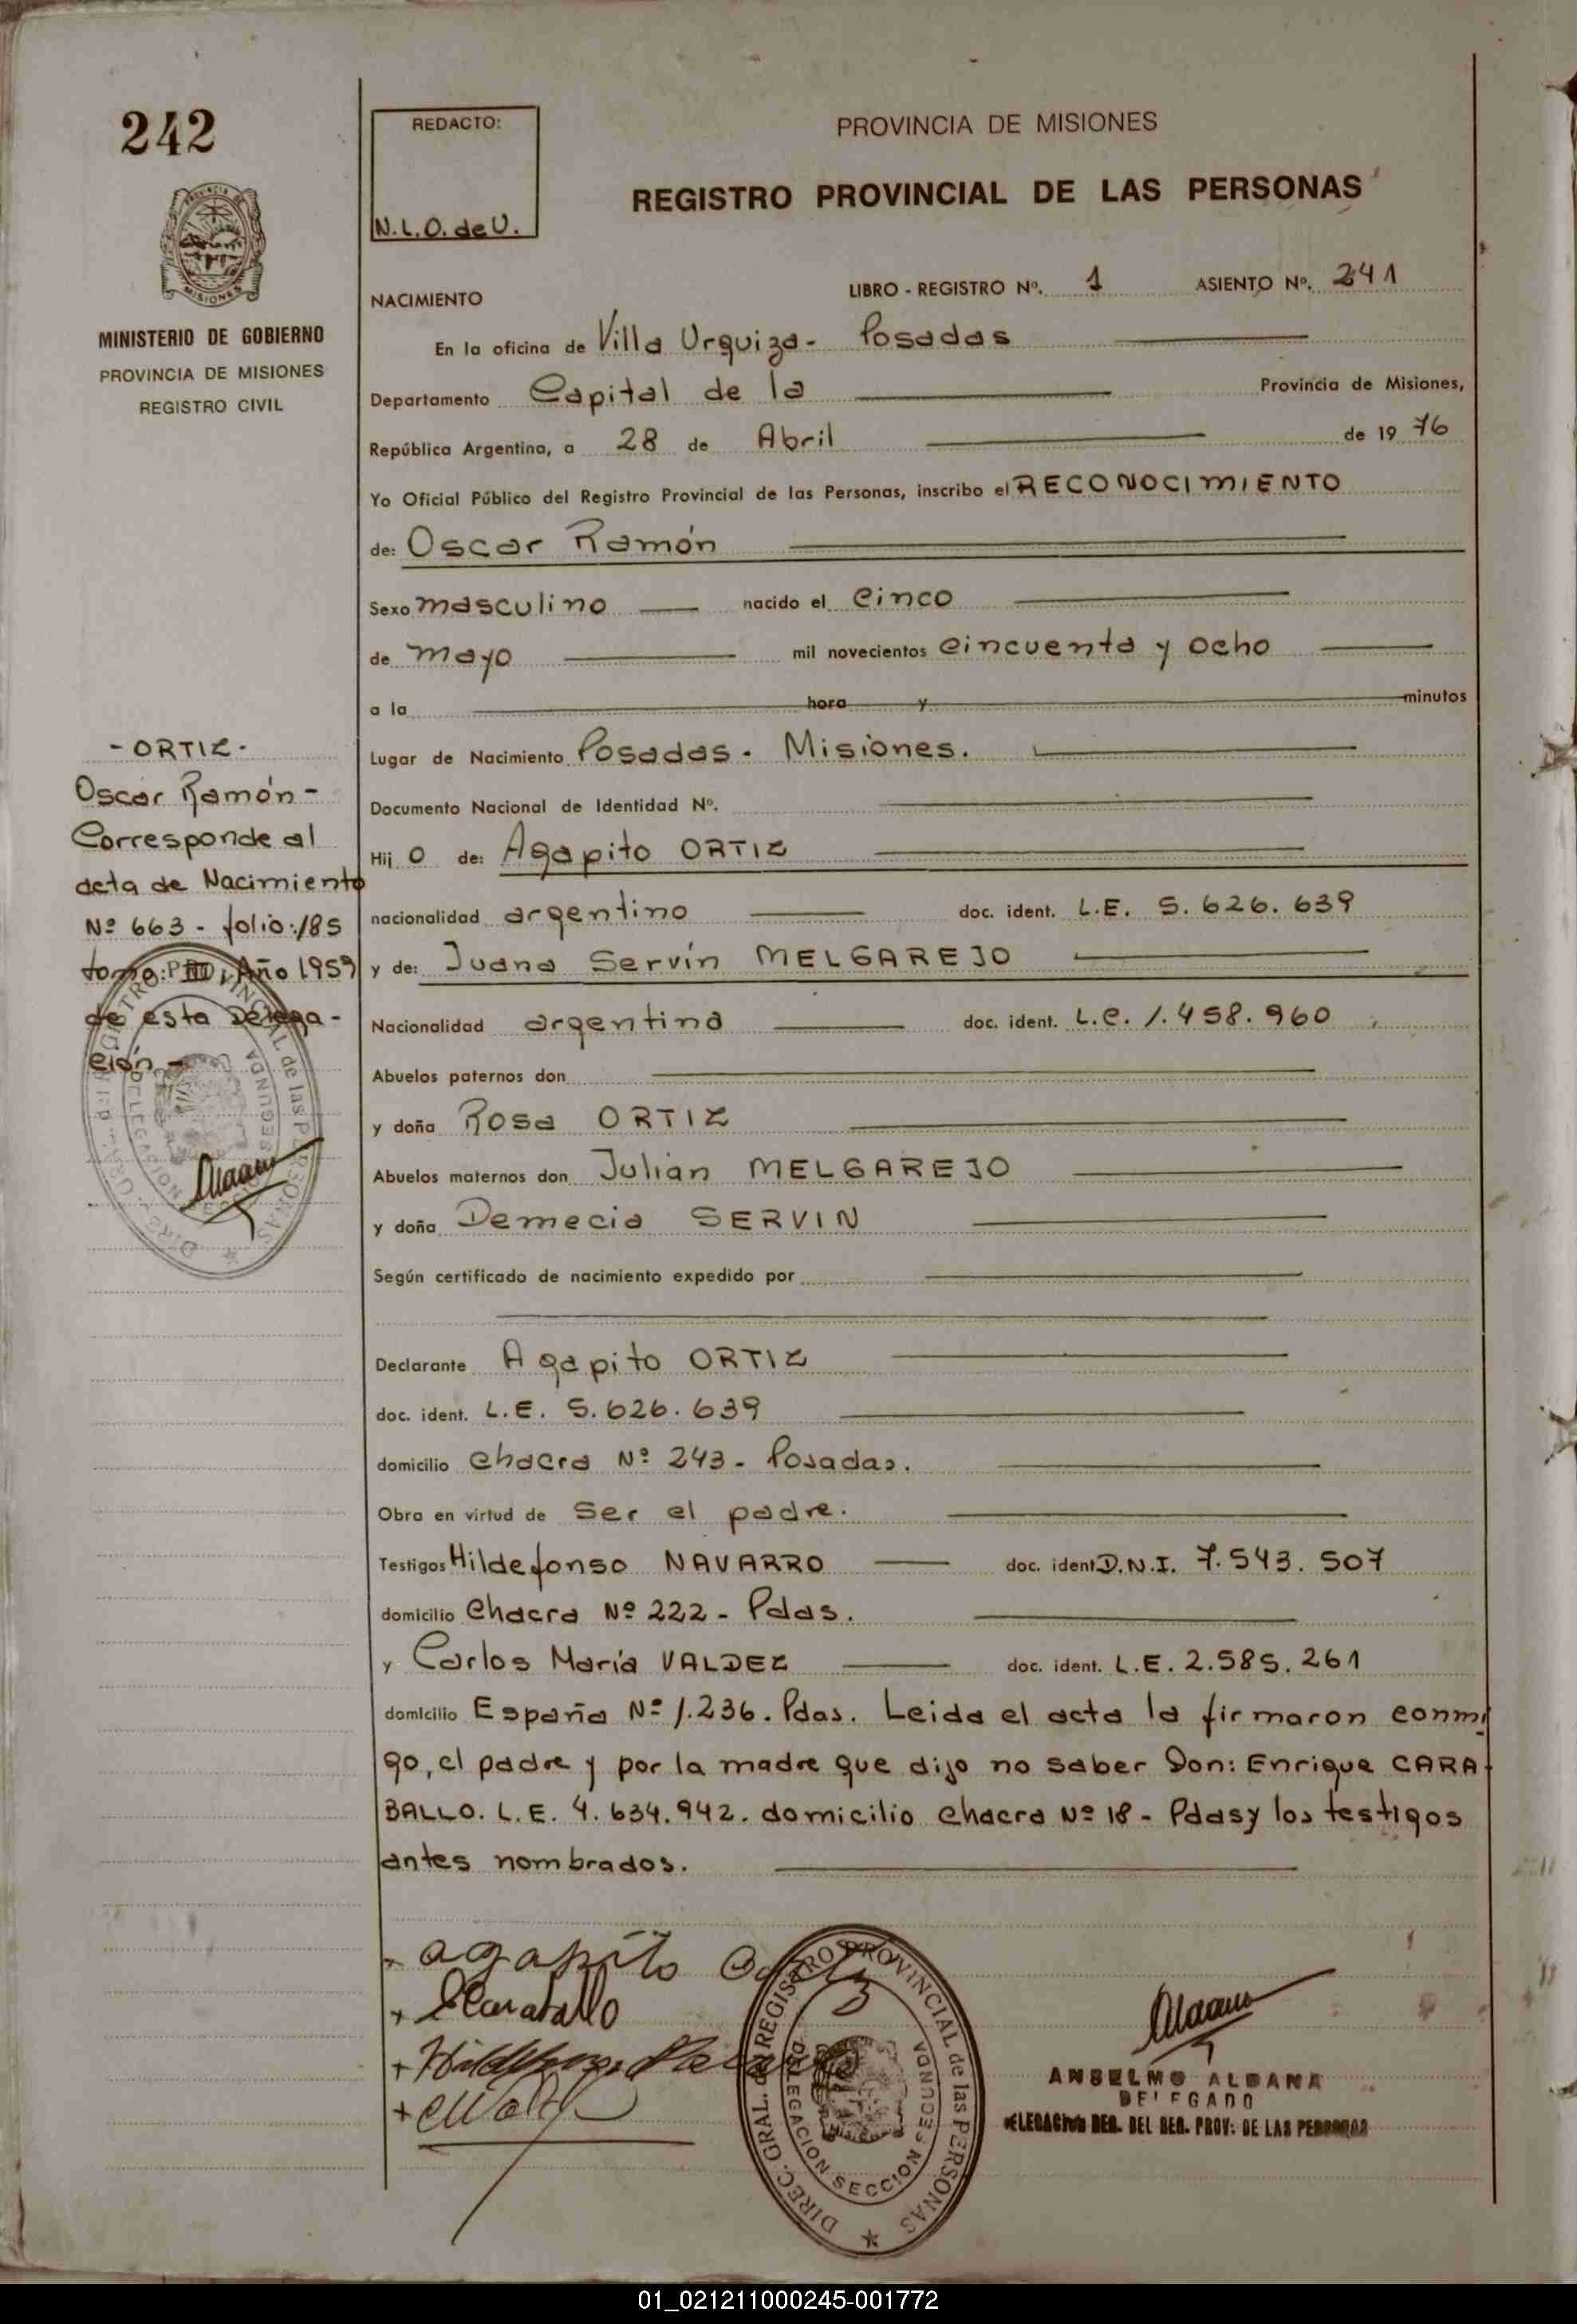 242
REDACTO:
N.L.O. de U.
PROVINCIA DE MISIONES
REGISTRO PROVINCIAL DE LAS PERSONAS
MISIONES
MINISTERIO DE GOBIERNO
PROVINCIA DE MISIONES
REGISTRO CIVIL
NACIMIENTO
LIBRO - REGISTRO Nº. 1 ASIENTO Nº. 241
En la oficina de Villa Urquiza - Posadas
Departamento Capital de la Provincia de Misiones,
República Argentina, a 28 de Abril de 1976
Yo Oficial Público del Registro Provincial de las Personas, inscribo el RECONOCIMIENTO
de: Oscar Ramón
Sexo masculino nacido el cinco
de mayo mil novecientos cincuenta y ocho
a la hora y minutos
Lugar de Nacimiento Posadas - Misiones.
Documento Nacional de Identidad Nº.
Hij o de: Agapito ORTIZ
nacionalidad argentino doc. ident. L.E. 5.626.639
y de: Juana Servín MELGAREJO
Nacionalidad argentina doc. ident. L.C. 1.458.960
Abuelos paternos don
y doña Rosa ORTIZ
Abuelos maternos don Julian MELGAREJO
y doña Demecia SERVIN
Según certificado de nacimiento expedido por
Declarante Agapito ORTIZ
doc. ident. L.E. 5.626.639
domicilio chacra Nº 243 - Posadas.
Obra en virtud de ser el padre.
Testigos Hildefonso NAVARRO doc. ident D.N.I. 7.543.507
domicilio chacra Nº 222 - Pdas.
y Carlos María VALDEZ doc. ident. L.E. 2.585.261
domicilio España Nº 1.236. Pdas. Leida el acta la firmaron conmi
go, el padre y por la madre que dijo no saber Don: Enrique CARA
BALLO. L.E. 4.634.942. domicilio chacra Nº 18 - Pdas y los testigos
antes nombrados.
- ORTIZ -
Oscar Ramón -
Corresponde al
acta de Nacimiento
Nº 663 - folio: 185
tomo: III, Año 1959
de esta Delega-
ción -
DELEGACION SEGUNDA
agapito Ortiz
ECaraballo
DIREC. GRAL. del REGISTRO PROVINCIAL de las PERSONAS
DELEGACION SECCION SEGUNDA
ANSELMO ALDANA
DELEGADO
DELEGACION DEG. DEL REG. PROV: DE LAS PERSONAS
01_021211000245-001772